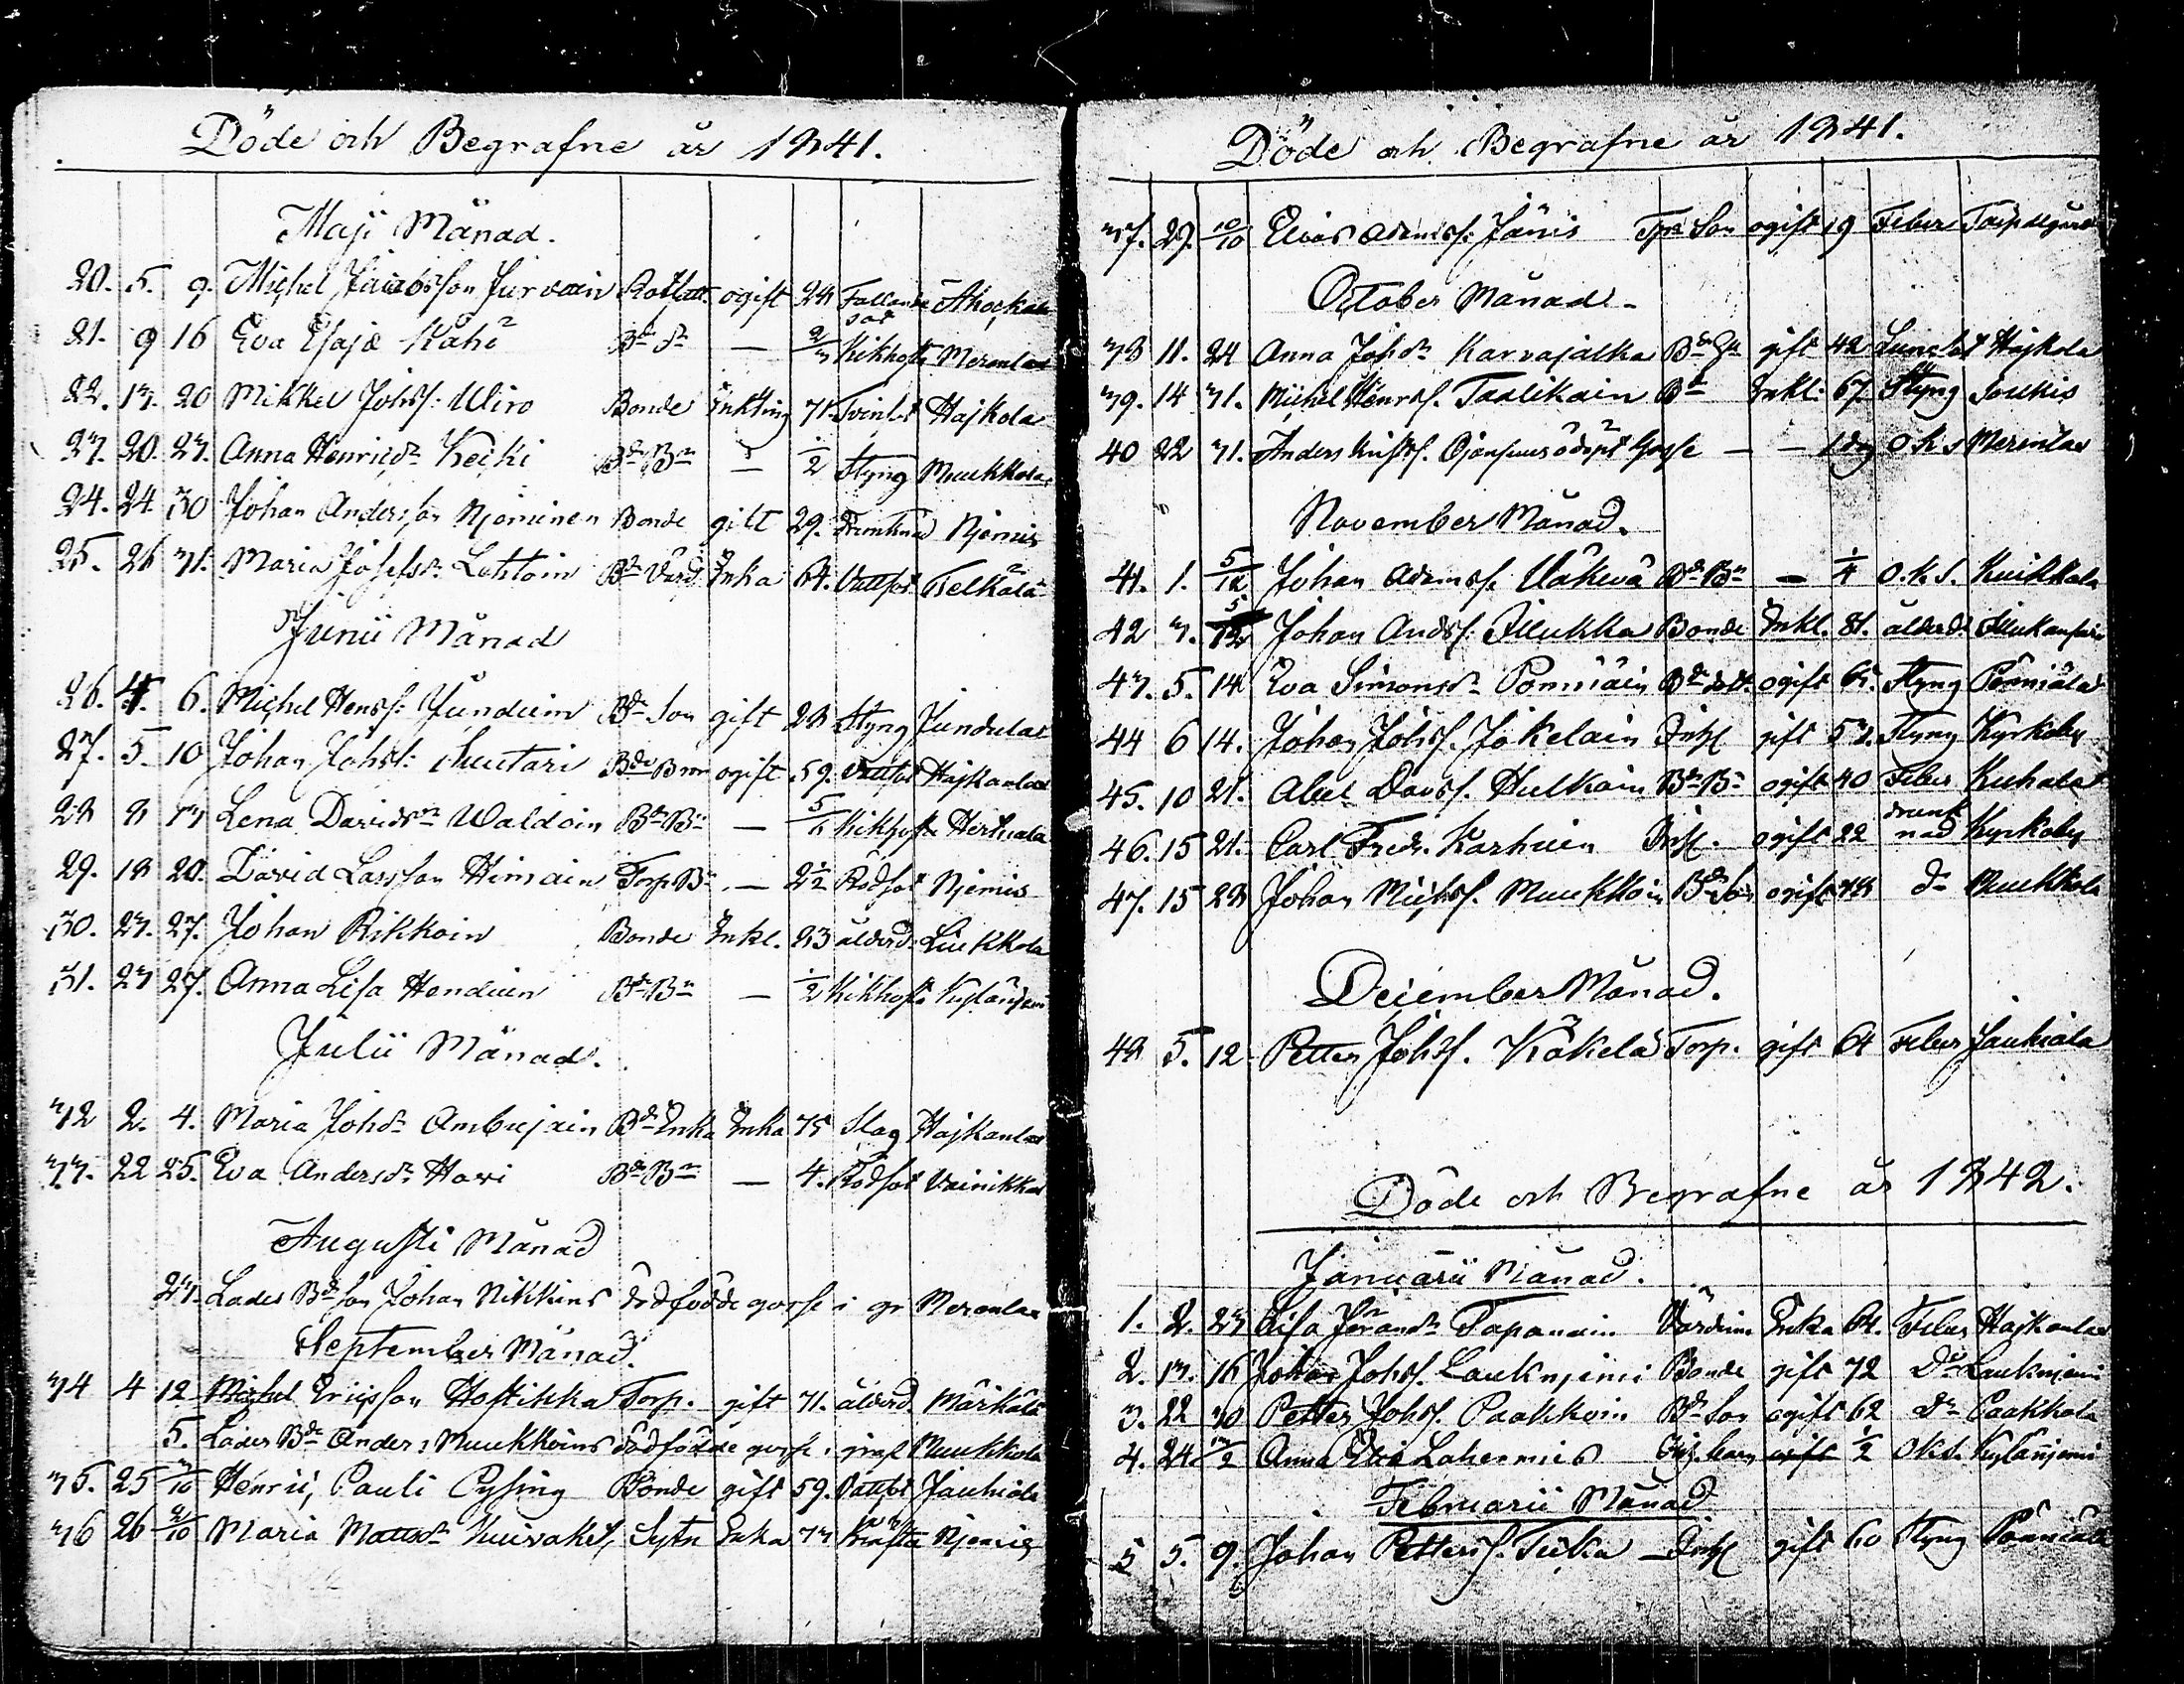 Döde och Begrafne år 1841.
Maji Månad.
20. 5. 9. Michel Jacobsson Jurvain ogift 28 Fallande sot Ahokas
21. 9 16 Eva Esajæ Kähi Bde dr — 2/3 Kikhosta Merenlax
22. 13. 20 Mikkel Johsf: Wiro Bonde Enkling 71. Tvinsot Hajkola
23. 20. 23. Anna Henricsdr Keiki Bde Bn — 1/2 Styng Muukkola
24. 24. 30 Johan Andersson Njeminen Bonde gift 29. Drunknad Njemis
25. 26 31. Maria Josefsdr Lehtoin Bde Enka 64. Vattsot Telkälä
Junii Månad
26. 4. 6. Michel Hensf: Junduin Bde Son gift 28 Styng Jundula
27. 5. 10 Johan Johsf: Suutari Bde Bror ogift 59. Vattsot Hajkanlax
28 8 13 Lena Davidsdr Waldoin Bde Bn — 5/6 Kikhosta Hertuala
29. 18 20. David Larsson Himain Torp Bn — 2 1/2 Rödsot Njemis
30. 23. 27. Johan Rikkoin Bonde Enkl. 83 ålderd: Liukkola
31. 23 27. Anna Lisa Henduin Bde Bn — 1/2 Kikhosta Kylänjemi
Julii Månad.
32 2. 4. Maria Johsdr Ambujain Bde Enka Enka 75 Slag Hajkanlax
33. 22 25. Eva Andersdr Hovi Bde Bn — 4. Rödsot Vainikka
Augusti Månad
23. Lades Bde Son Johan Nikkins dödfödde gosse i gr Merenlax
September Månad.
34 4 12 Michel Ericsson Hostikka Torp. gift 71. ålderd. Märkälä
5. Lades Bde Anders Muukkoins dödfödde gosse i graf Muukkola
35. 25 3/10 Henric Pauli Pysing Bonde gift 59. Vattsot Jauhiala
36 26 3/10 Maria Mattsdr Kuivaket, Sytn Enka 73 Kräfta Njemis
Döde och Begrafne år 1841.
37. 29. 10/10 Elias Adamsf: Jänis Tpr Son ogift 19 Feber
October Månad.
38 11. 24 Anna Johsdr Karvajalka gift 42 Lungsot Hajkola
39. 14 31. Michel Henrsf. Taalikain Bde Enkl: 67 Styng Soukis
40 22 31. Anders Gosse — — 1 dag O. k. s Merenlax
November Månad.
41. 1. 5/12 Johan Adamsf. Väkevä Bde Bn — 1/4 O. k. s. Kuikkala
42 3. 5/12 Johan Andsf: Ilukka Bonde Enkl. 81. ålderd:
43. 5. 14 Eva Simonsdr Pönniäin Bde dott. ogift Styng Pönniälä
44 6 14. Johan Johsf. Jokelain Inhs gift 53. Styng Kyrkoby
45. 10 21. Abel Davsf. Hulkoin Bde Bn ogift 40 Feber Kuhala
46. 15 21. Carl Fredr. Karhuin Inhs. ogift 22 drunknad Kyrkoby
47. 15 28 Johan Michsf. Muukkoin Bde Son ogift 38 do Muukkola
December Månad.
48 5. 12 Petter Johsf. Kökelä Torp. gift 64 Feber Jauhiala
Döde och Begrafne år 1842.
Januarii Månad.
1. 2. 23 Lisa Jöransdr Tapanain Enka 64. Feber Hajkanlax
2. 13. 16 Johan Johsf. Lauknjemi Bonde gift 72 Do Lauknjemi
3. 22 30 Petter Johsf. Paakkoin Bde Son ogift 62 Do Paakkola
4. 24 13/2 Anna Lahermis Inhs. barn gift 1/2 O. k. s. Kylänjemi
Februarii Månad
5 5. 9. Johan Pettersf. Tuka Inhs gift 60 Styng Pönniälä